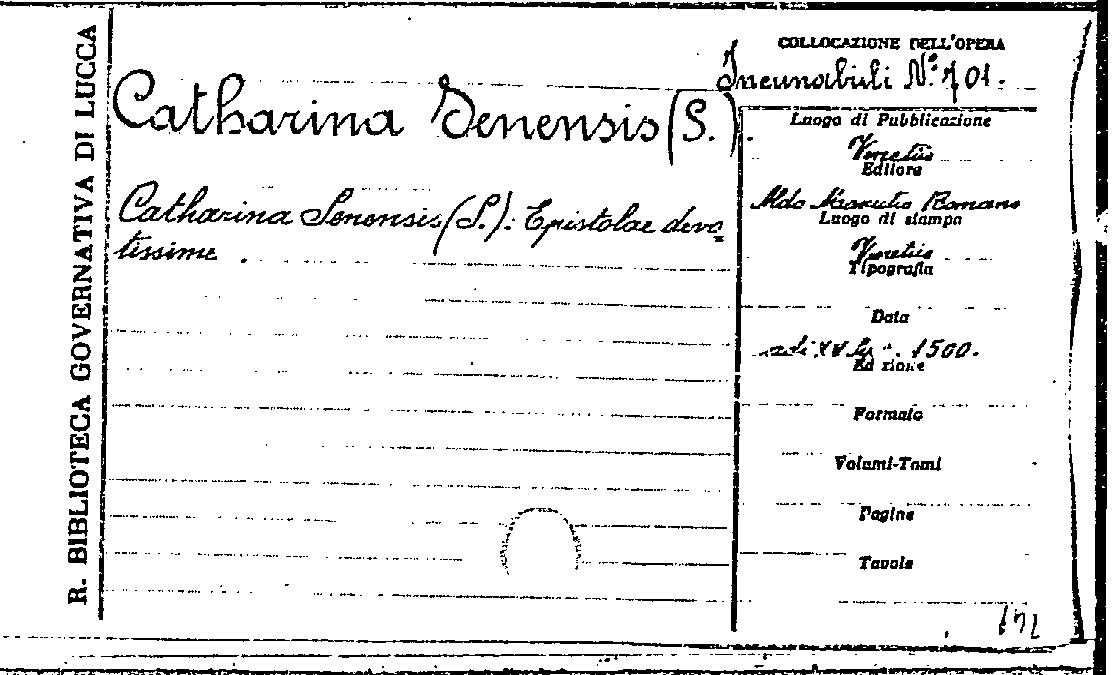 R. BIBLIOTECA GOVERNATIVA DI LUCCA
COLLOCAZIONE DELL'OPERA
Incunabuli N.° 701.
Catharina Senensis (S.).
Catharina Senensis (S.): Epistolae devo=
tissime.
Luogo di Pubblicazione
Venetiis
Editore
Aldo Manutio Romano
Luogo di stampa
Venetiis
Tipografia
Data
adi XV 1500.
Edizione
Formato
Volumi-Tomi
Pagine
Tavole